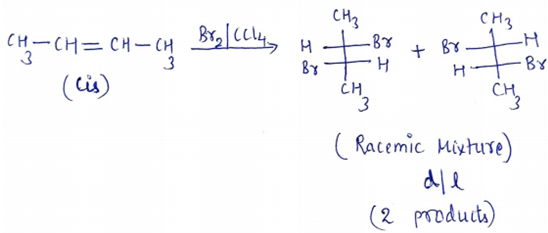 CH3-CH=CH-CH3 Br2/CCl4
(Cis)
CH3
H Br
Br H
CH3
+
CH3
Br H
H Br
CH3
(Racemic Mixture)
d/l
(2 products)